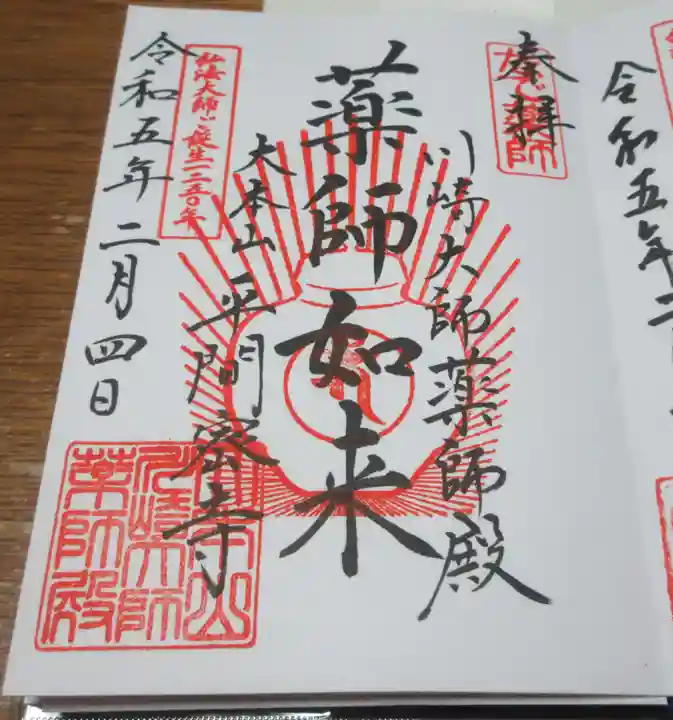 奉拝
川崎大師薬師殿
薬師如来
大本山平間寺
弘法大師ご誕生一二五〇年
令和五年二月四日
大本山
川崎大師
薬師殿
令和五年二